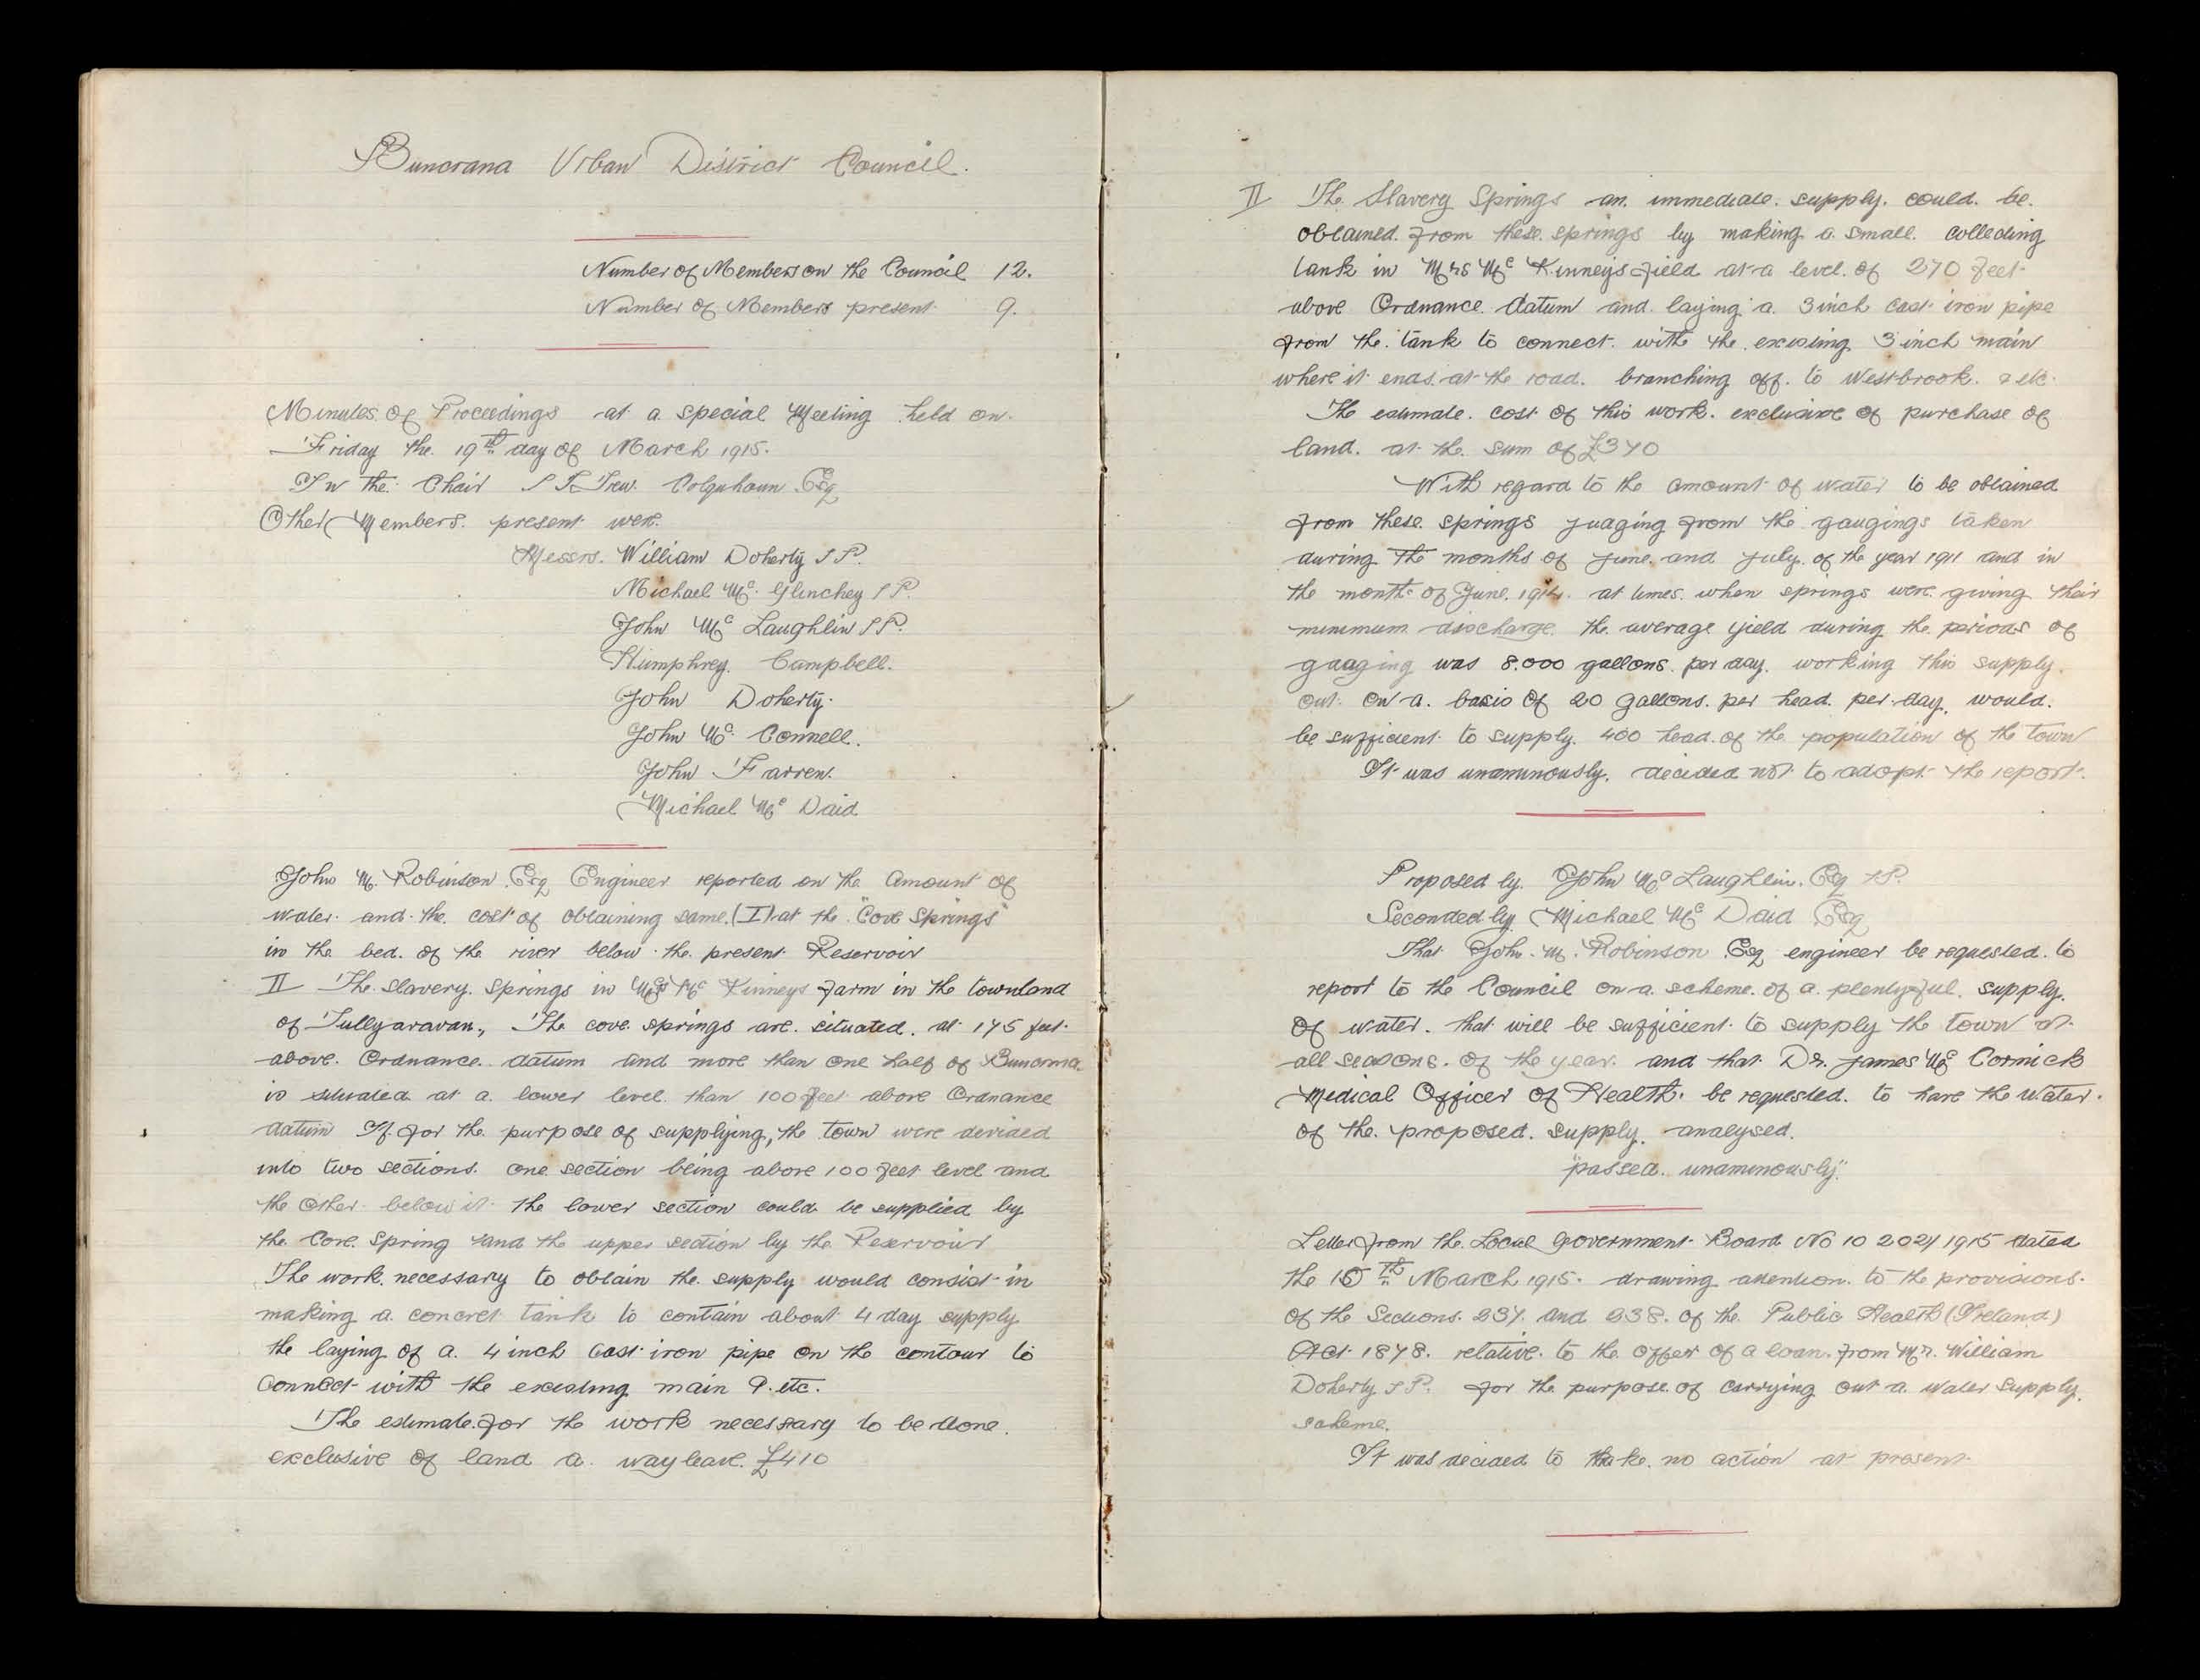 Buncrana Urban District Council.
Number of Members on the Council 12.
Number of Members present 9.
Minutes of Proceedings at a special Meeting held on
Friday the 19th day of March 1915.
In the Chair Colquhoun Esq
Other Members present were.
Messrs. William Doherty J P.
Michael Mc Glinchey J P.
John Mc Laughlin J P.
Humphrey Campbell.
John Doherty.
John Mc Connell.
John Farren.
Michael Mc Daid
John M. Robinson Esq Engineer reported on the amount of
water and the cost of obtaining same (I) at the "Cove Springs"
in the bed of the river below the present Reservoir
II The Slavery Springs in Mrs Mc Kinneys farm in the townland
of Tullyaravan., The cove springs are situated at 175 feet
above Ordnance datum and more than one half of Buncrana
is situated at a lower level than 100 feet above Ordnance
datum If for the purpose of supplying, the town were devided
into two sections. one section being above 100 feet level and
the other below it the lower section could be supplied by
the Cove Spring and the upper section by the Reservoir
The work necessary to obtain the supply would consist in
making a concret tank to contain about 4 day supply
the laying of a 4 inch cast iron pipe on the contour to
connect with the existing main & etc.
The estimate for the work necessary to be done.
exclusive of land a wayleave £410
II The Slavery Springs an immediate supply could be
obtained from these springs by making a small collecting
tank in Mrs Mc Kinneys field at a level of 270 feet
above Ordnance datum and laying a 3 inch cast iron pipe
from the tank to connect with the existing 3 inch main
where it ends at the road branching off to Westbrook & etc.
The estimate cost of this work exclusive of purchase of
land at the sum of £370
With regard to the amount of water to be obtained
from these springs juaging from the gaugings taken
during the months of June and July of the year 1911 and in
the month of June 1914. at times when springs were giving their
minimum discharge the average yield during the periods of
gauging was 8.000 gallons per day. working this supply
out on a basis of 20 gallons per head per day would
be sufficient to supply 400 head of the population of the town
It was unaminously decided not to adopt the report.
Proposed by John Mc Laughlin Esq J P.
Seconded by Michael Mc Daid Esq
That John M. Robinson Esq engineer be requested to
report to the Council on a scheme of a plentyful supply
of water that will be sufficient to supply the town at
all seasons of the year and that Dr. James Mc Cormick
Medical Officer of Health be requested to have the water
of the proposed supply analysed.
"passed unaminously"
Letter from the Local Government Board No 10 2021 1915 dated
the 15th March 1915. drawing attention to the provisions
of the Sections 237 and 238 of the Public Health (Ireland)
Act 1878. relative to the offer of a loan from Mr. William
Doherty J P. for the purpose of carrying out a water supply
scheme.
It was decided to take no action at present